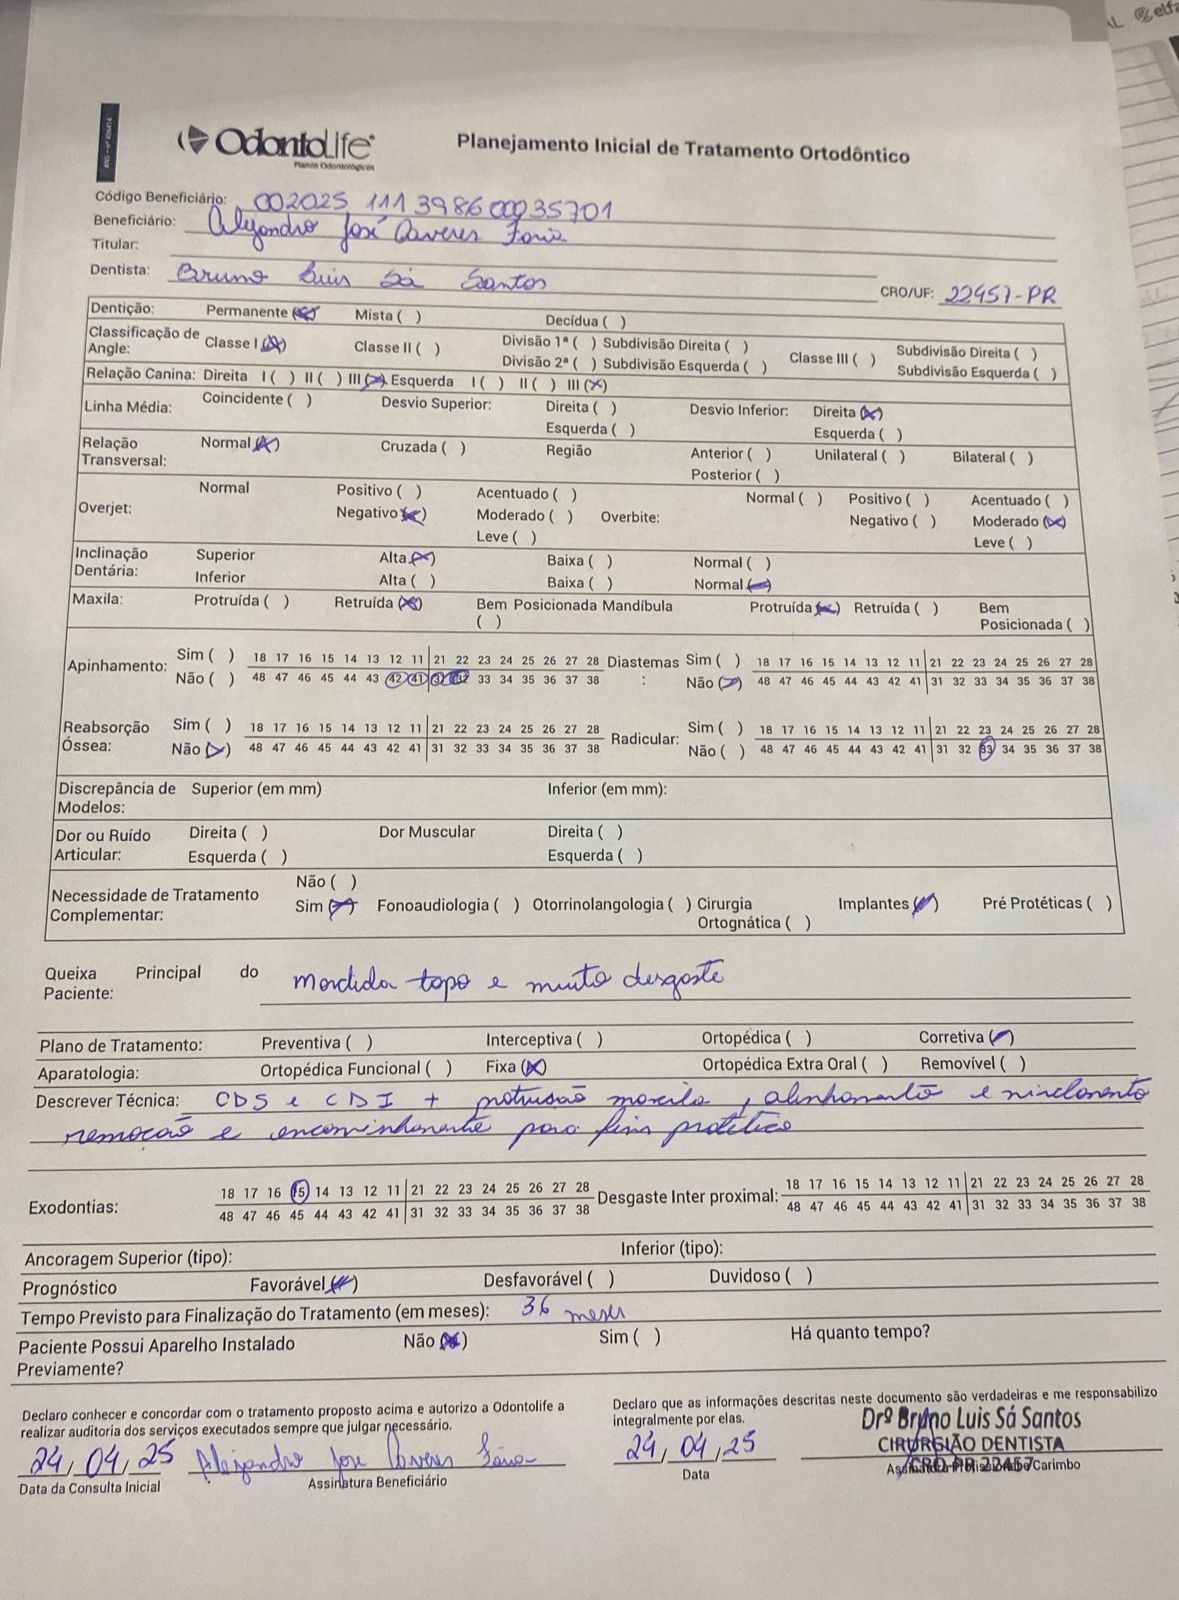 @elfa
ANS - nº 406414
OdontoLife
Planos Odontológicos
Planejamento Inicial de Tratamento Ortodôntico
Código Beneficiário: 002025 111 398600035701
Beneficiário: José
Titular:
Dentista: Bruno Luis Sá Santos CRO/UF: 22457-PR
Dentição: Permanente (x) Mista ( ) Decídua ( )
Classificação de Angle: Classe I (x) Classe II ( ) Divisão 1ª ( ) Subdivisão Direita ( ) Classe III ( ) Subdivisão Direita ( )
Divisão 2ª ( ) Subdivisão Esquerda ( ) Subdivisão Esquerda ( )
Relação Canina: Direita I ( ) II ( ) III (x) Esquerda I ( ) II ( ) III (x)
Linha Média: Coincidente ( ) Desvio Superior: Direita ( ) Desvio Inferior: Direita (x)
Esquerda ( ) Esquerda ( )
Relação Transversal: Normal (x) Cruzada ( ) Região Anterior ( ) Unilateral ( ) Bilateral ( )
Posterior ( )
Overjet: Normal Positivo ( ) Acentuado ( ) Overbite: Normal ( ) Positivo ( ) Acentuado ( )
Negativo (x) Moderado ( ) Negativo ( ) Moderado (x)
Leve ( ) Leve ( )
Inclinação Dentária: Superior Alta (x) Baixa ( ) Normal ( )
Inferior Alta ( ) Baixa ( ) Normal (x)
Maxila: Protruída ( ) Retruída (x) Bem Posicionada ( ) Mandíbula Protruída (x) Retruída ( ) Bem Posicionada ( )
Apinhamento: Sim ( ) 18 17 16 15 14 13 12 11 21 22 23 24 25 26 27 28 Diastemas: Sim ( ) 18 17 16 15 14 13 12 11 21 22 23 24 25 26 27 28
Não ( ) 48 47 46 45 44 43 42 41 31 32 33 34 35 36 37 38 Não (x) 48 47 46 45 44 43 42 41 31 32 33 34 35 36 37 38
Reabsorção Óssea: Sim ( ) 18 17 16 15 14 13 12 11 21 22 23 24 25 26 27 28 Radicular: Sim ( ) 18 17 16 15 14 13 12 11 21 22 23 24 25 26 27 28
Não (x) 48 47 46 45 44 43 42 41 31 32 33 34 35 36 37 38 Não ( ) 48 47 46 45 44 43 42 41 31 32 33 34 35 36 37 38
Discrepância de Modelos: Superior (em mm) Inferior (em mm):
Dor ou Ruído Articular: Direita ( ) Dor Muscular Direita ( )
Esquerda ( ) Esquerda ( )
Necessidade de Tratamento Complementar: Não ( )
Sim (x) Fonoaudiologia ( ) Otorrinolangologia ( ) Cirurgia Ortognática ( ) Implantes (x) Pré Protéticas ( )
Queixa Principal do Paciente: mordida topo e muito desgaste
Plano de Tratamento: Preventiva ( ) Interceptiva ( ) Ortopédica ( ) Corretiva (x)
Aparatologia: Ortopédica Funcional ( ) Fixa (x) Ortopédica Extra Oral ( ) Removível ( )
Descrever Técnica: CDS e CDI + protrusão maxila, alinhamento e nivelamento
remoção e encaminhamento para fins protético
Exodontias: 18 17 16 15 14 13 12 11 21 22 23 24 25 26 27 28 Desgaste Inter proximal: 18 17 16 15 14 13 12 11 21 22 23 24 25 26 27 28
48 47 46 45 44 43 42 41 31 32 33 34 35 36 37 38 48 47 46 45 44 43 42 41 31 32 33 34 35 36 37 38
Ancoragem Superior (tipo): Inferior (tipo):
Prognóstico Favorável (x) Desfavorável ( ) Duvidoso ( )
Tempo Previsto para Finalização do Tratamento (em meses): 36 meses
Paciente Possui Aparelho Instalado Previamente? Não (x) Sim ( ) Há quanto tempo?
Declaro conhecer e concordar com o tratamento proposto acima e autorizo a Odontolife a
realizar auditoria dos serviços executados sempre que julgar necessário.
24, 04, 25 Alejandro Jose
Data da Consulta Inicial Assinatura Beneficiário
Declaro que as informações descritas neste documento são verdadeiras e me responsabilizo
integralmente por elas.
24, 04, 25
Data
Drº Bruno Luis Sá Santos
CIRURGIÃO DENTISTA
CRO PR 22457
Assinatura Profissional e Carimbo